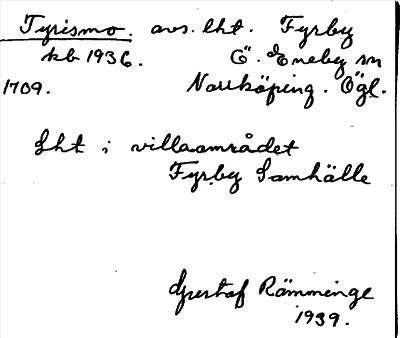 Tyrismo. avs. lht. Fyrby
kb 1936. Ö. Eneby sn
1709. Norrköping. Ögl.
Lht i villaområdet
Fyrby Samhälle
Gustaf Rämminge
1939.